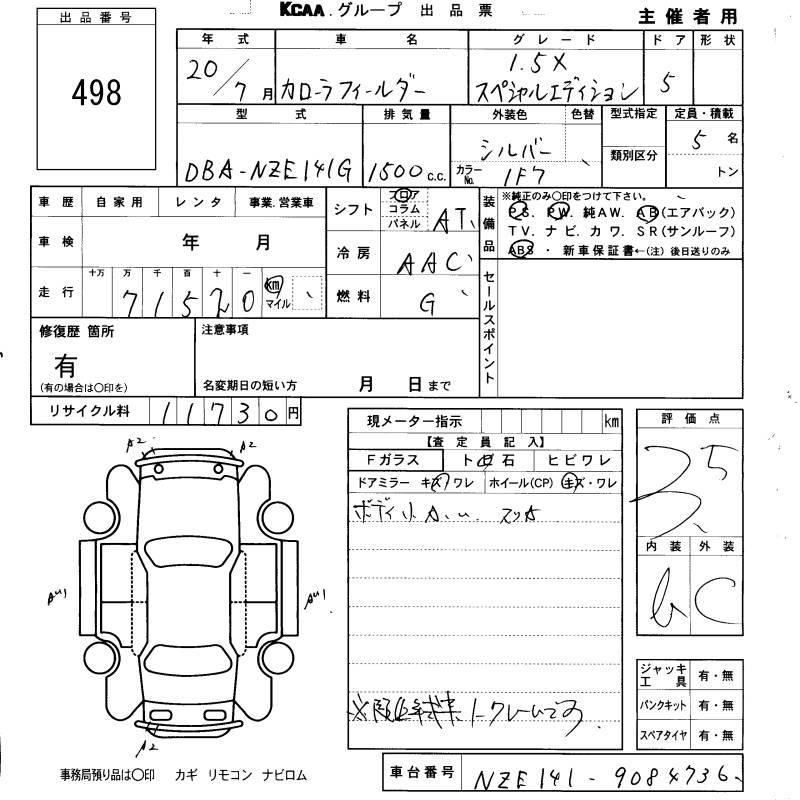 出品番号
498
KCAA.グループ 出品票
主催者用
年式 車名 グレード ドア 形状
20/7月 カローラフィールダー 1.5X スペシャルエディション 5
型式 排気量 外装色 色替 型式指定 定員・積載
類別区分
DBA-NZE141G 1500c.c. シルバー 5名
カラーNo. 1F7 トン
車歴 自家用 レンタ 事業.営業車
車検 年 月
走行 十万 万 千 百 十 一 km マイル
71520
シフト フロア コラム パネル AT
冷房 AAC
燃料 G
装備品
※純正のみ○印をつけて下さい。
PS. PW. 純AW. AB(エアバック)
TV. ナビ. カワ. SR(サンルーフ)
ABS ・ 新車保証書←(注) 後日送りのみ
セールスポイント
修復歴 箇所
有
(有の場合は○印を)
注意事項
名変期日の短い方 月 日まで
リサイクル料 11730円
現メーター指示 km
【査定員記入】
Fガラス ト石 ヒビワレ
ドアミラー キズ ワレ ホイール(CP) キズ・ワレ
ボディ小A.u スリキ
評価点
3.5
内装 外装
C
A2 A2
AU1 AU1
A2
ジャッキ工具 有・無
パンクキット 有・無
スペアタイヤ 有・無
ノークレームです
事務局預り品は○印 カギ リモコン ナビロム
車台番号 NZE141-9084736